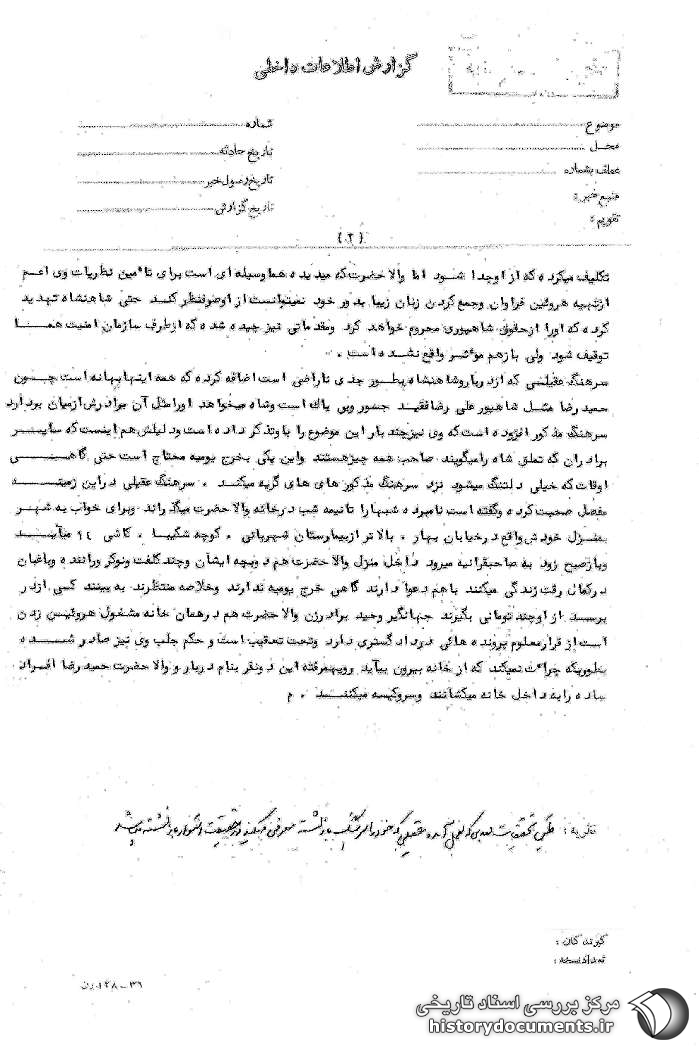 گزارش اطلاعات داخلی
موضوع
محل
عطف بشماره
منبع خبر :
تقویم :
شماره
تاریخ حادثه
تاریخ رسول خبر
تاریخ گزارش
(۲)
تکلیف میکرده که از او جدا شود اما والاحضرت که میدیده هما وسیله ای است برای تأمین نظریات وی اعم
از تهیه هروئین فراوان وجمع کردن زنان زیبا بدور خود نمیتوانست از او صرفنظر کند حتی شاهنشاه تهدید
کرده که او را از حقوق شاهپوری محروم خواهد کرد ومقدماتی نیز چیده شده که از طرف سازمان امنیت همـا
توقیف شود ولی بازهم مؤثر واقع نشده است .
سرهنگ عقیلی که از دربار وشاهنشاه بطور جدی ناراضی است اضافه کرده که همه اینها بهانه است چـون
حمید رضا مثـل شاهپور علی رضا فقیـد جسور وبی باك است وشاه میخواهد اورا مثل آن برادرش از میان بردارد
سرهنگ مذکور افزوده است که وی نیز چند بار این موضوع را باو تذکر داده است ودلیلش هم اینست که سایـر
برادران که تملق شاه را میگویند صاحب همه چیز هستند واین یکی بخرج یومیه محتاج است حتی گاهـی
اوقات که خیلی دلتنگ میشود نزد سرهنگ مذکور های های گریه میکند . سرهنگ عقیلی در این زمینـه
مفصل صحبت کرده وگفته است نامبرده شبها را تا نیمه شب در خانه والاحضرت میگذراند وبرای خواب به شهر
بمنـزل خودش واقع در خیابان بهار ، بالاتر از بیمارستان شهربانی ، کوچه شکیبا ، کاشی ۱۴ میآیـد
وباز صبح زود به صاحبقرانیه میرود داخل منزل والاحضرت هم دوبچه ایشان وچند کلفت ونوکر وراننده وباغبان
در کمال رقت زندگی میکنند باهم دعوا دارند گاهی خرج یومیه ندارند وخلاصه منتظرند به بینند کسی از در
برسد از او چند تومانی بگیرند جهانگیر وحید برادرزن والاحضرت هم در همان خانه مشغول هروئین زدن
است از قرار معلوم پرونده هائی در دادگستری دارد وتحت تعقیب است وحکم جلب وی نیز صادر شـده
بطوریکه جرأت نمیکند که از خانه بیرون بیاید رویهمرفته این دونفر بنام دربار و والاحضرت حمید رضا افـراد
ساده را به داخل خانه میکشانند وسروکیسه میکننـد . م
نظریه : طی تحقیقات بعدی که بعمل آمده عقیلی که خود را سرهنگ بازنشسته معرفی میکند در حقیقت استوار بازنشسته میباشد
گیرندگان :
تعداد نسخه :
۳۶-۱۴۸
مرکز بررسی اسناد تاریخی
historydocuments.ir